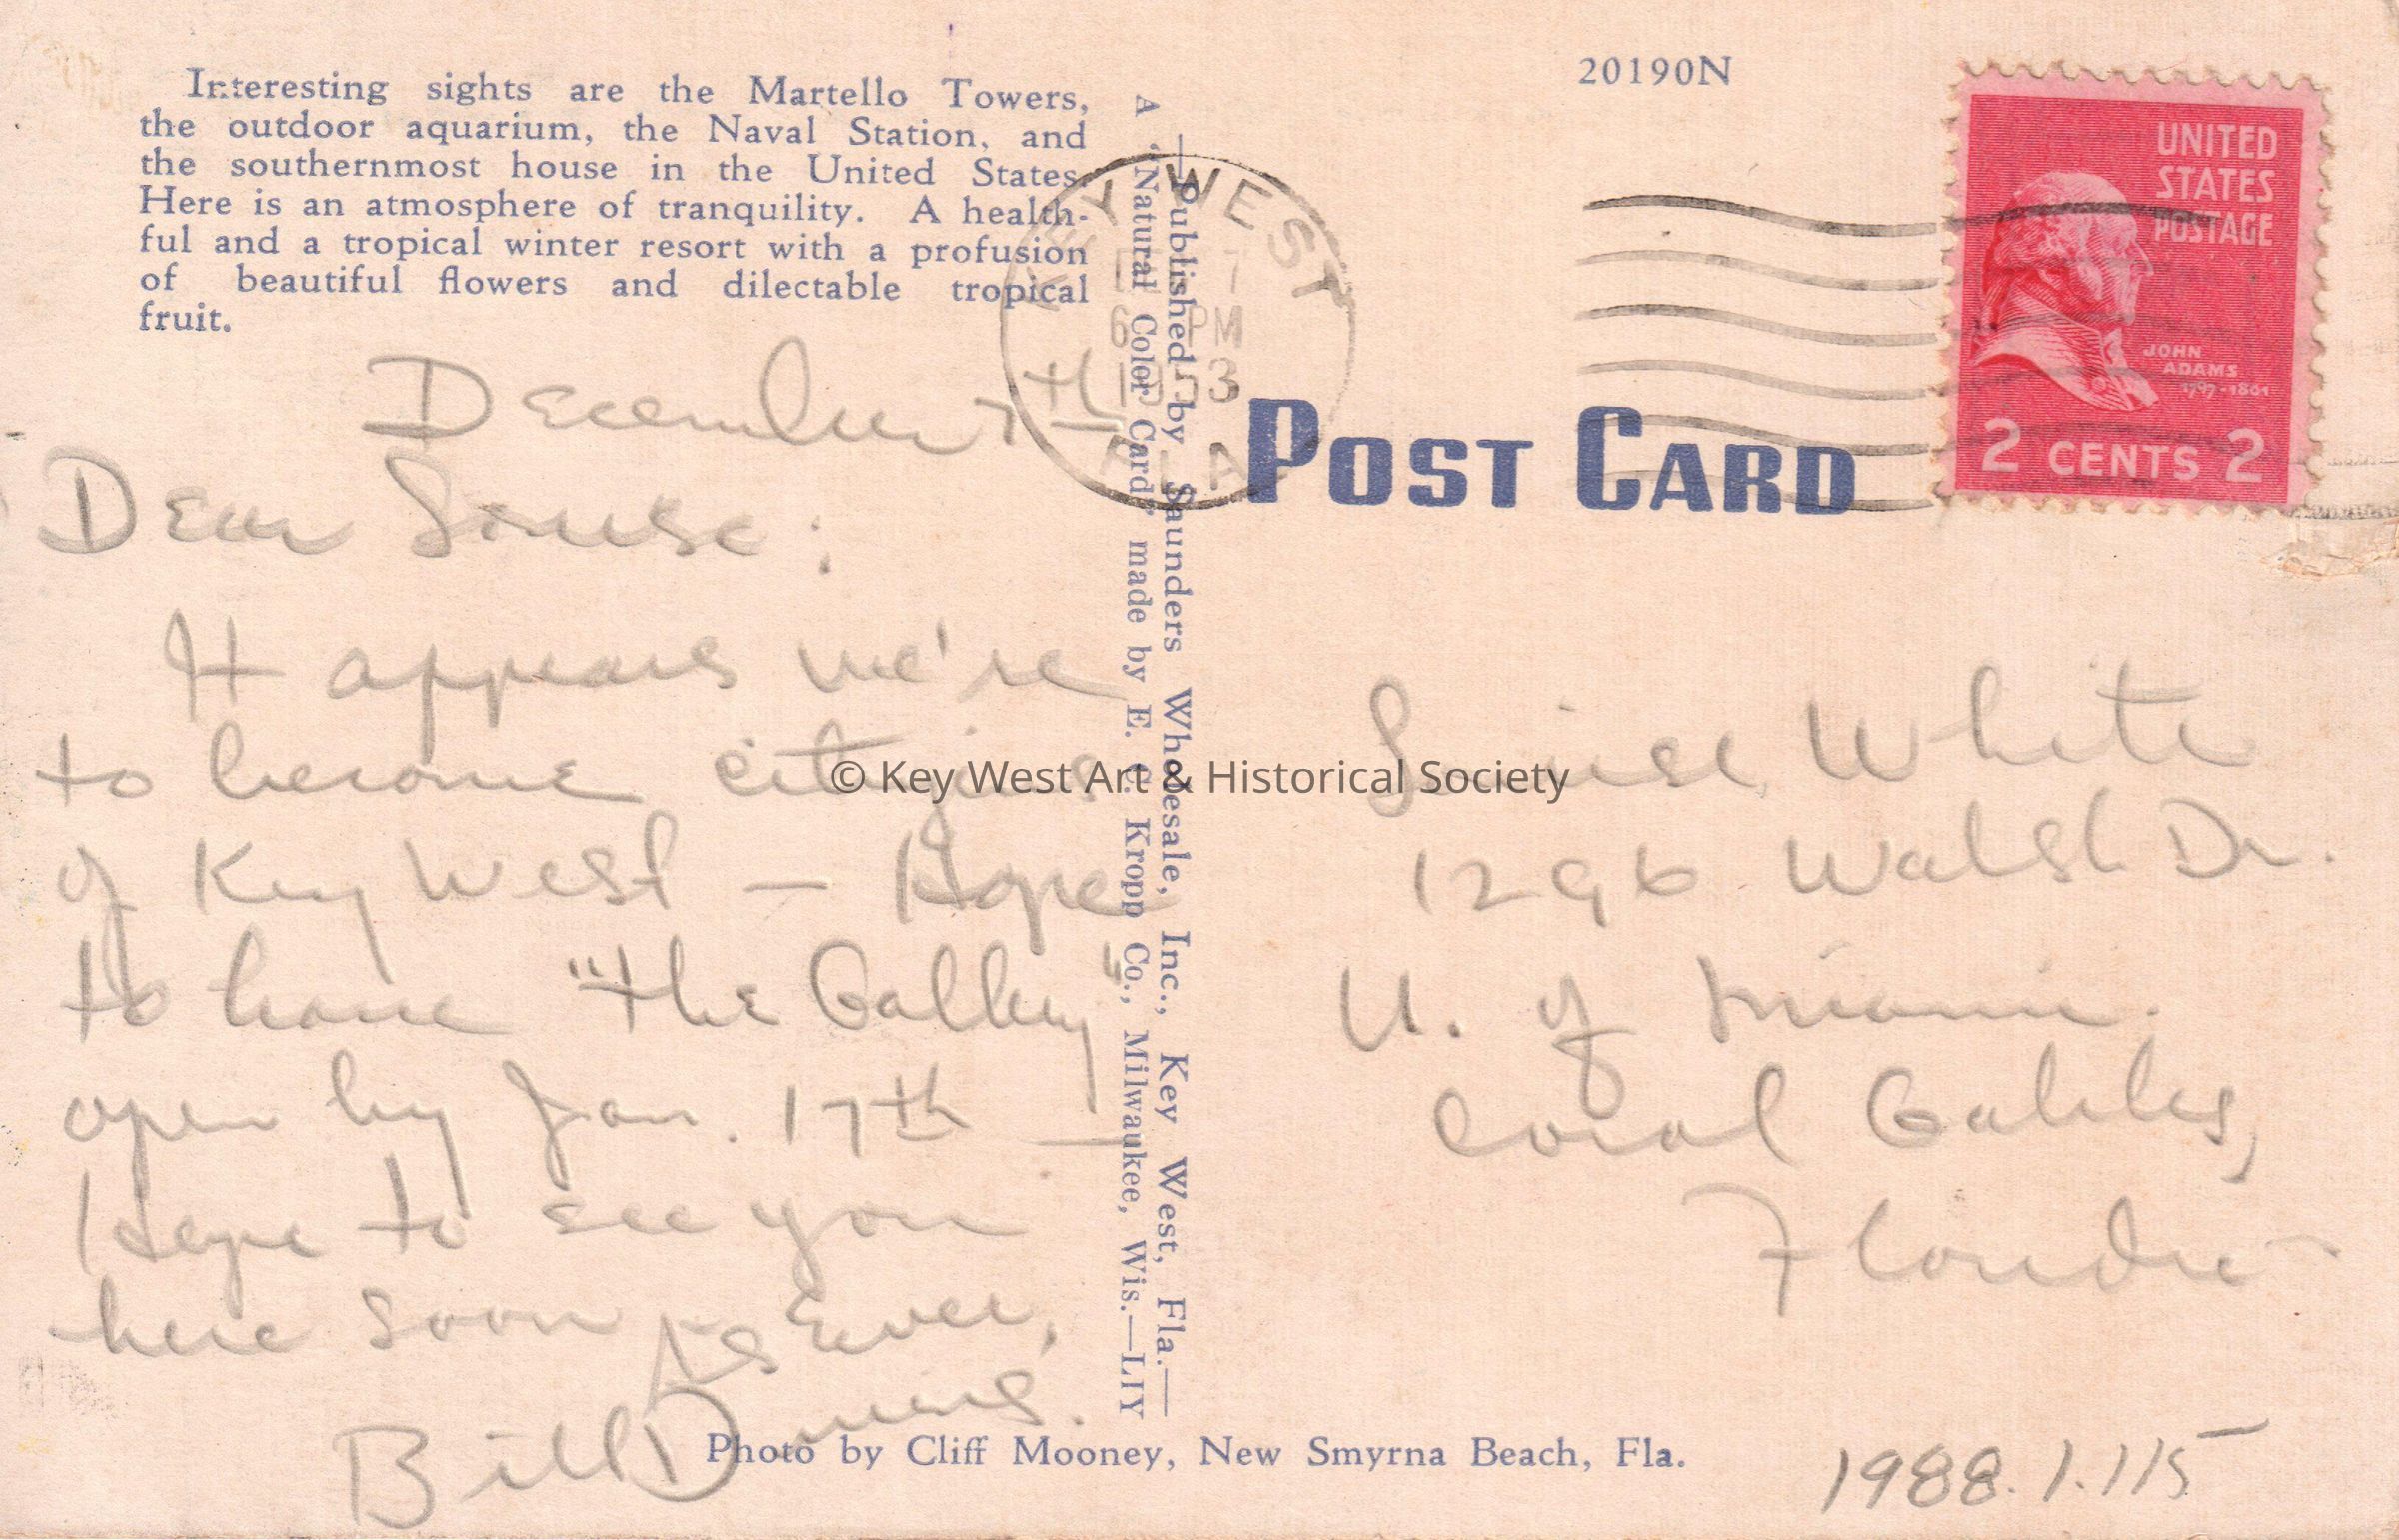 Interesting sights are the Martello Towers,
the outdoor aquarium, the Naval Station, and
the southernmost house in the United States.
Here is an atmosphere of tranquility. A health-
ful and a tropical winter resort with a profusion
of beautiful flowers and dilectable tropical
fruit.
December 7th
Dear Louise:
It appears we're
to become citizens
of Key West — Hope
to have "the Galley"
open by Jan. 17th —
Hope to see you
here soon
As Ever,
Bill
A "Natural Color Card" made by E. C. Kropp Co., Milwaukee, Wis.—LIY
—Published by Saunders Wholesale, Inc., Key West, Fla.—
20190N
KEY WEST
7
6 PM
1953
FLA
UNITED
STATES
POSTAGE
JOHN
ADAMS
1797-1801
2 CENTS 2
POST CARD
Louise White
1296 Walsh Dr.
U. of Miami.
Coral Gables,
Florida
© Key West Art & Historical Society
Photo by Cliff Mooney, New Smyrna Beach, Fla.
1988.1.115